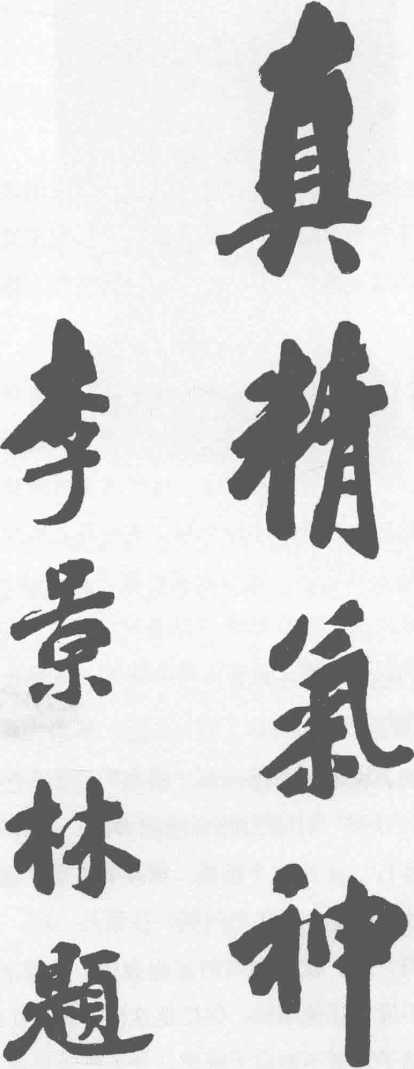 真精氣神
李景林題